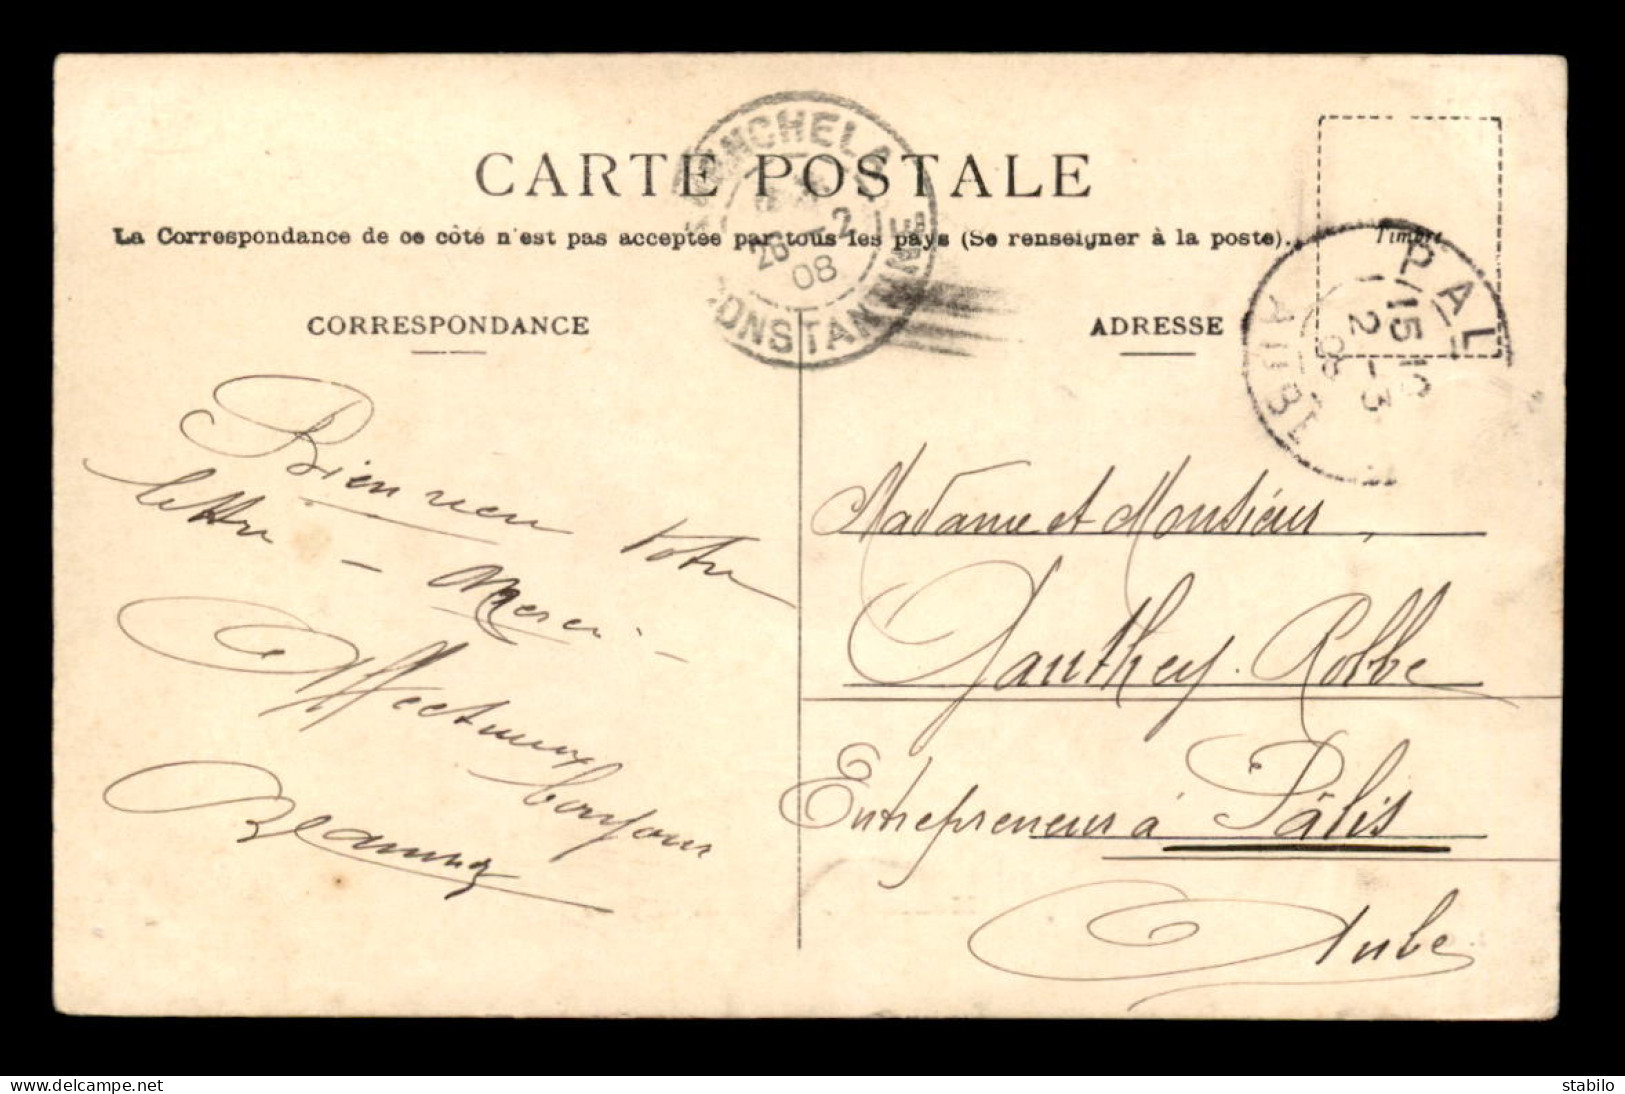 CARTE POSTALE
La Correspondance de ce côté n'est pas acceptée par tous les pays (Se renseigner à la poste).
KHENCHELA
26 -2
08
CONSTANTINE
Timbre
PAL
15 15
2 -3
08
AUBE
CORRESPONDANCE
ADRESSE
Bien reçu votre
lettre - Merci -
Affectueux
bonjour
Madame et Monsieur,
Gauthey-Robbe
Entrepreneur à Pâlis
Aube
www.delcampe.net
stabilo